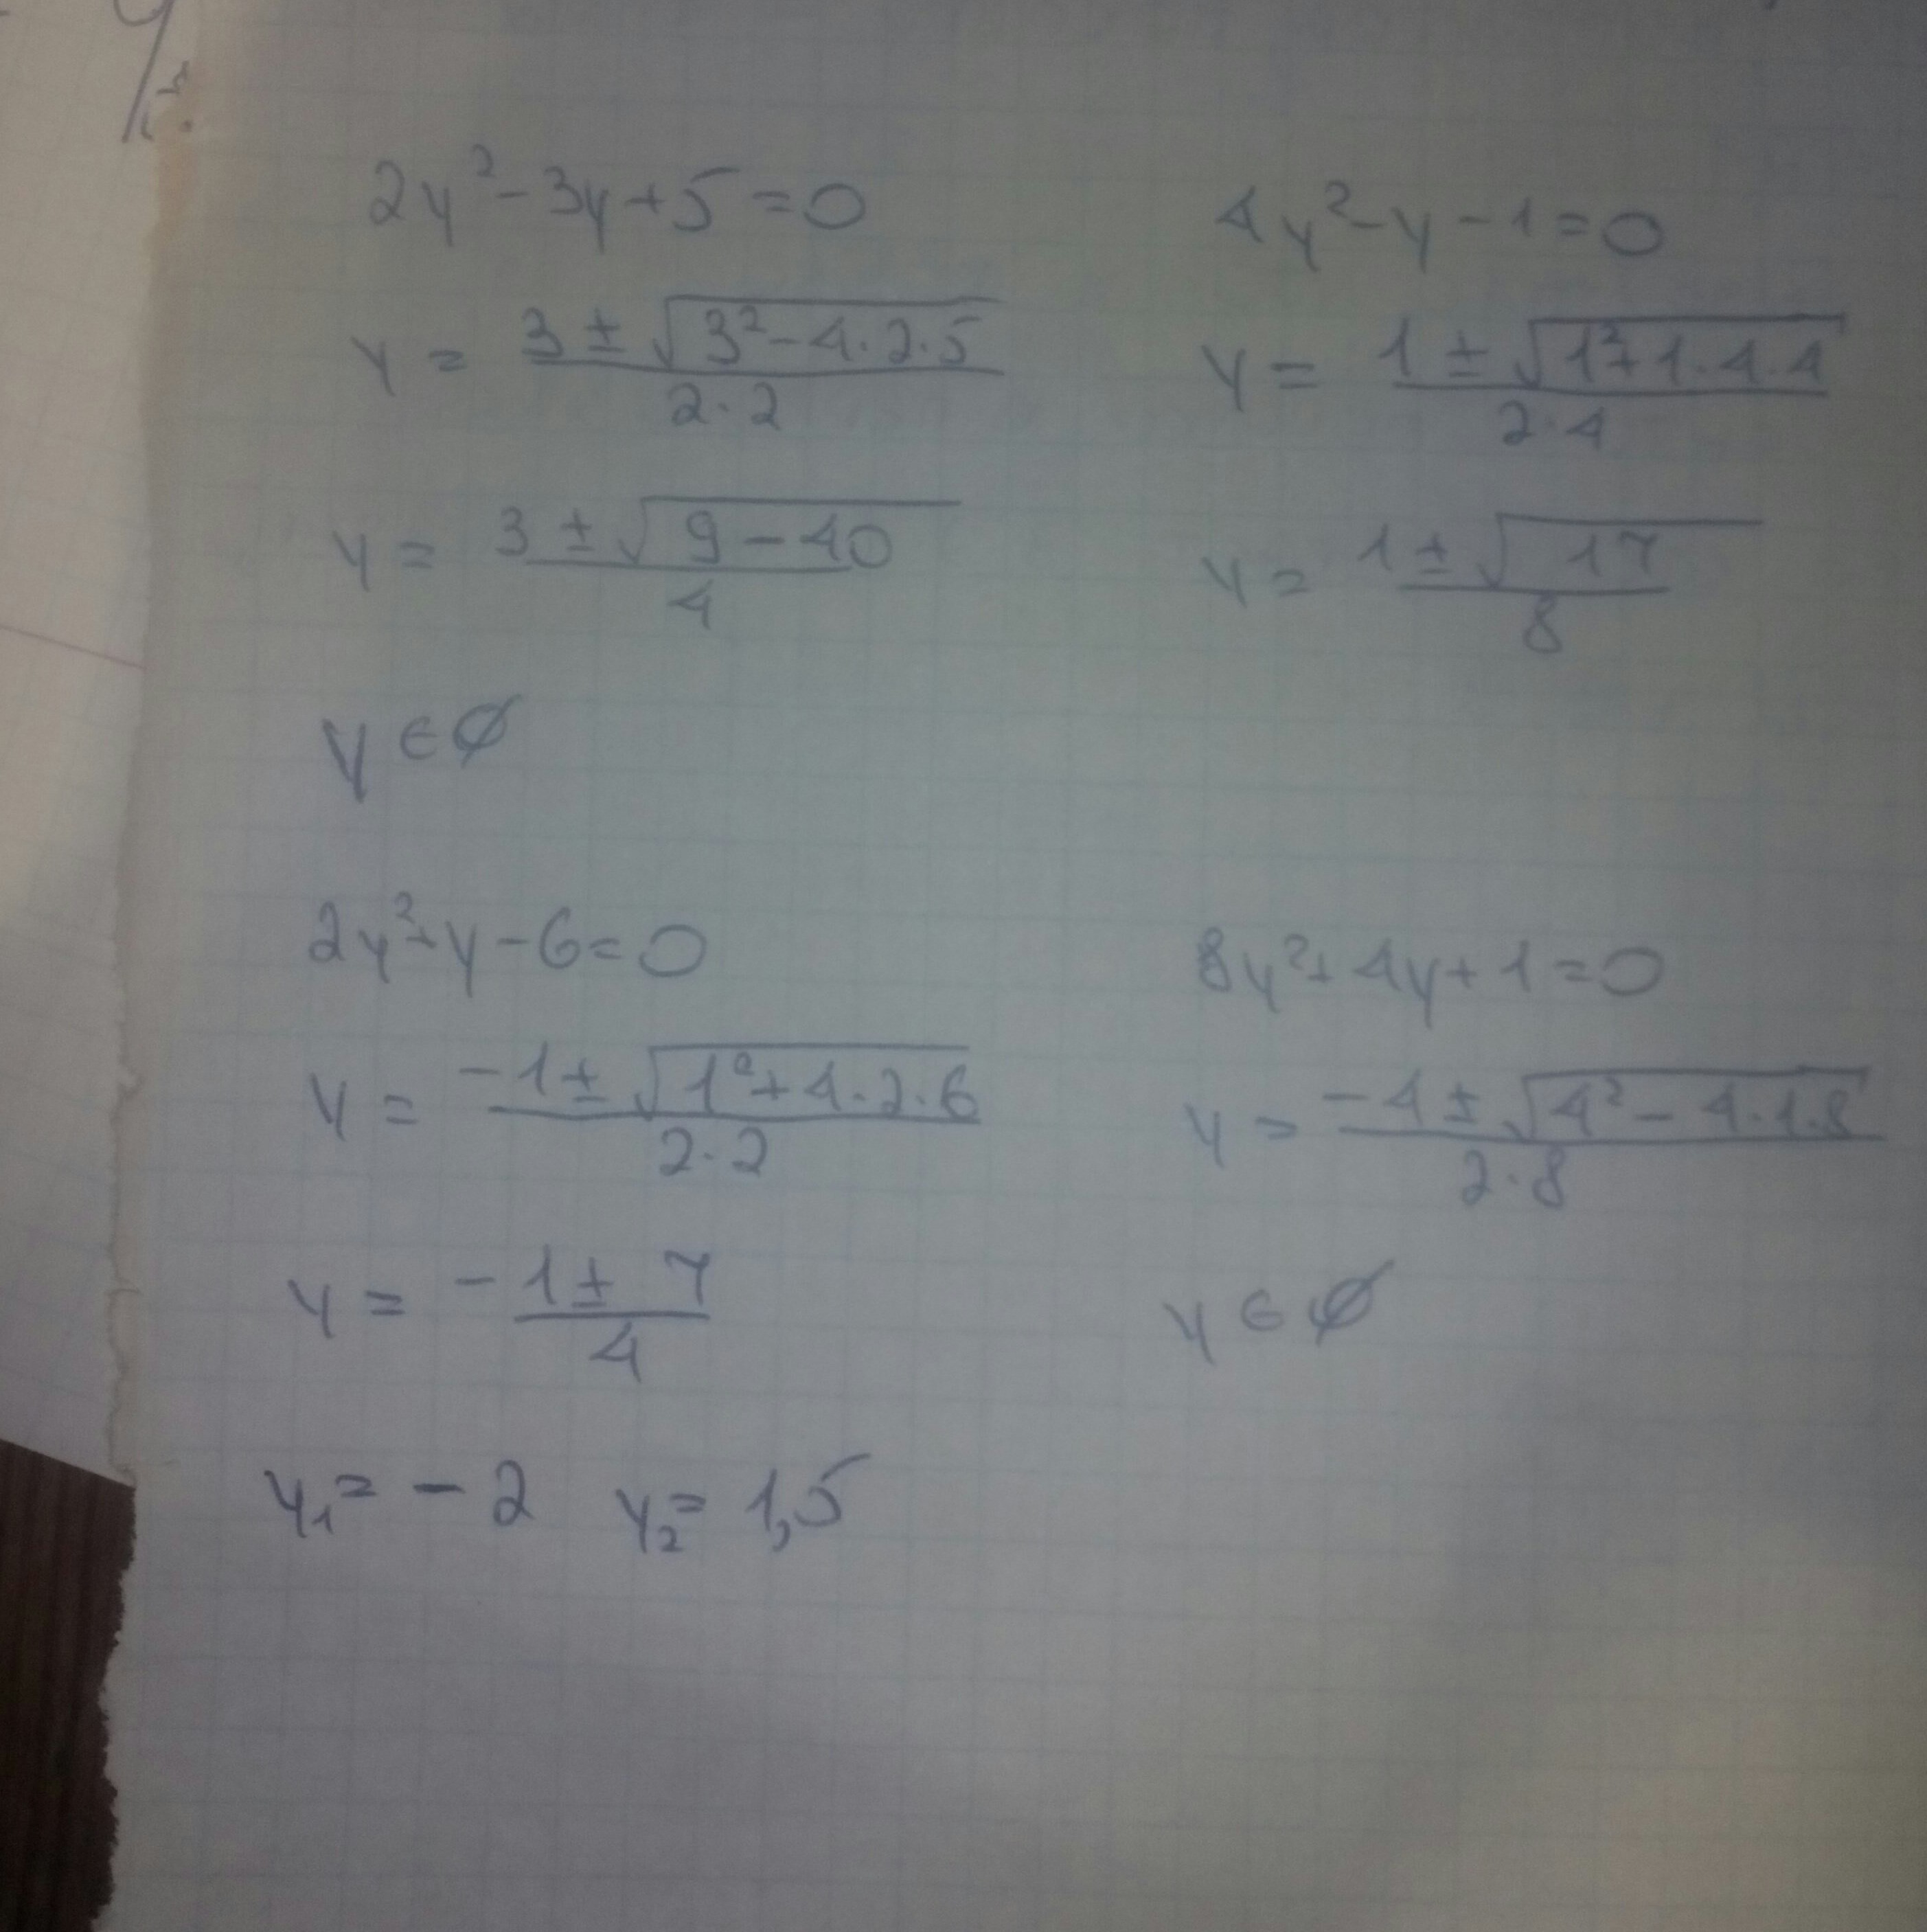 2y² - 3y + 5 = 0
y = (3 ± √(3² - 4 · 2 · 5)) / (2 · 2)
y = (3 ± √(9 - 40)) / 4
y ∈ ∅
4y² - y - 1 = 0
y = (1 ± √(1² + 1 · 4 · 4)) / (2 · 4)
y = (1 ± √17) / 8
2y² + y - 6 = 0
y = (-1 ± √(1² + 4 · 2 · 6)) / (2 · 2)
y = (-1 ± 7) / 4
y₁ = -2 y₂ = 1,5
8y² + 4y + 1 = 0
y = (-4 ± √(4² - 4 · 1 · 8)) / (2 · 8)
y ∈ ∅